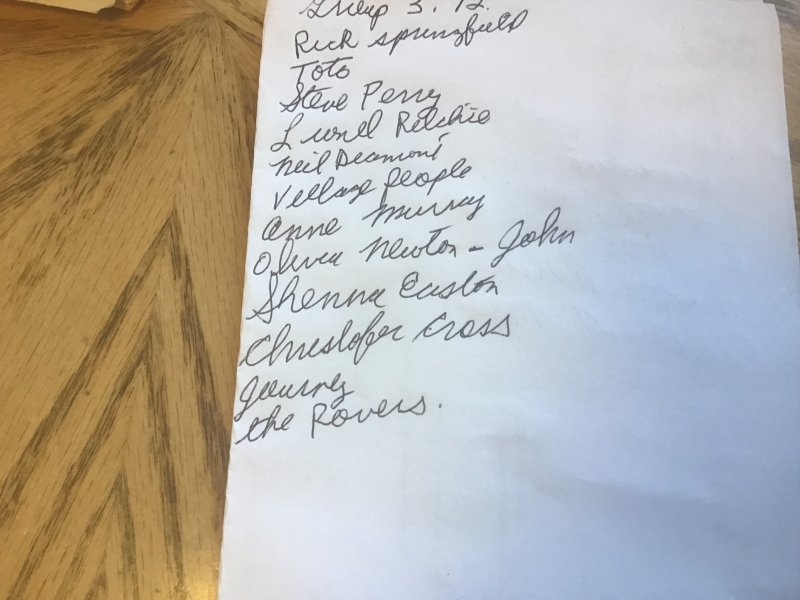 Group 3. 12.
Rick Springfield
Toto
Steve Perry
Lionel Ritchie
Neil Deamont
Village People
Anne Murray
Olivia Newton - John
Shenna Easton
Christofer Cross
Journey
the Rovers.